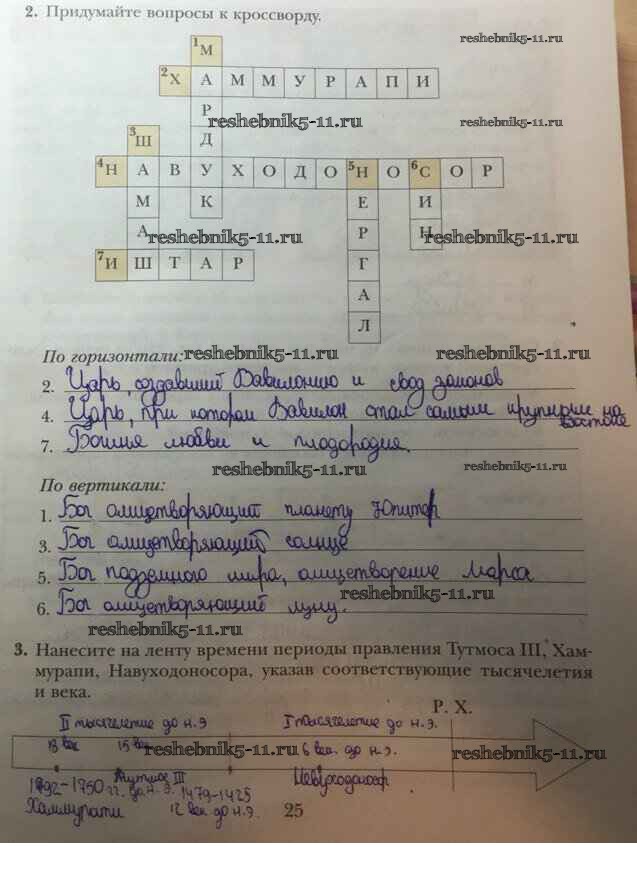 2. Придумайте вопросы к кроссворду.
reshebnik5-11.ru
1М
2Х А М М У Р А П И
Р
reshebnik5-11.ru
reshebnik5-11.ru
3Ш Д
4Н А В У Х О Д О 5Н О 6С О Р
М К Е И
А Р Н
reshebnik5-11.ru
reshebnik5-11.ru
7И Ш Т А Р Г
А
Л
По горизонтали:
reshebnik5-11.ru
reshebnik5-11.ru
2. Царь, создавший Вавилонию и свод законов
4. Царь, при котором Вавилон стал самым крупным на востоке
7. Богиня любви и плодородия.
reshebnik5-11.ru
reshebnik5-11.ru
По вертикали:
1. Бог олицетворяющий планету Юпитер
3. Бог олицетворяющий солнце
5. Бог подземного мира, олицетворение Марса
reshebnik5-11.ru
6. Бог олицетворяющий луну.
reshebnik5-11.ru
3. Нанесите на ленту времени периоды правления Тутмоса III, Хам-
мурапи, Навуходоносора, указав соответствующие тысячелетия
и века.
Р. Х.
II тысячелетие до н.э I тысячелетие до н.э.
18 век 15 век 6 век. до н.э.
reshebnik5-11.ru
reshebnik5-11.ru
1792-1750 гг. до н.э. III 1479-1425
Хаммурапи 12 век до н.э.
25